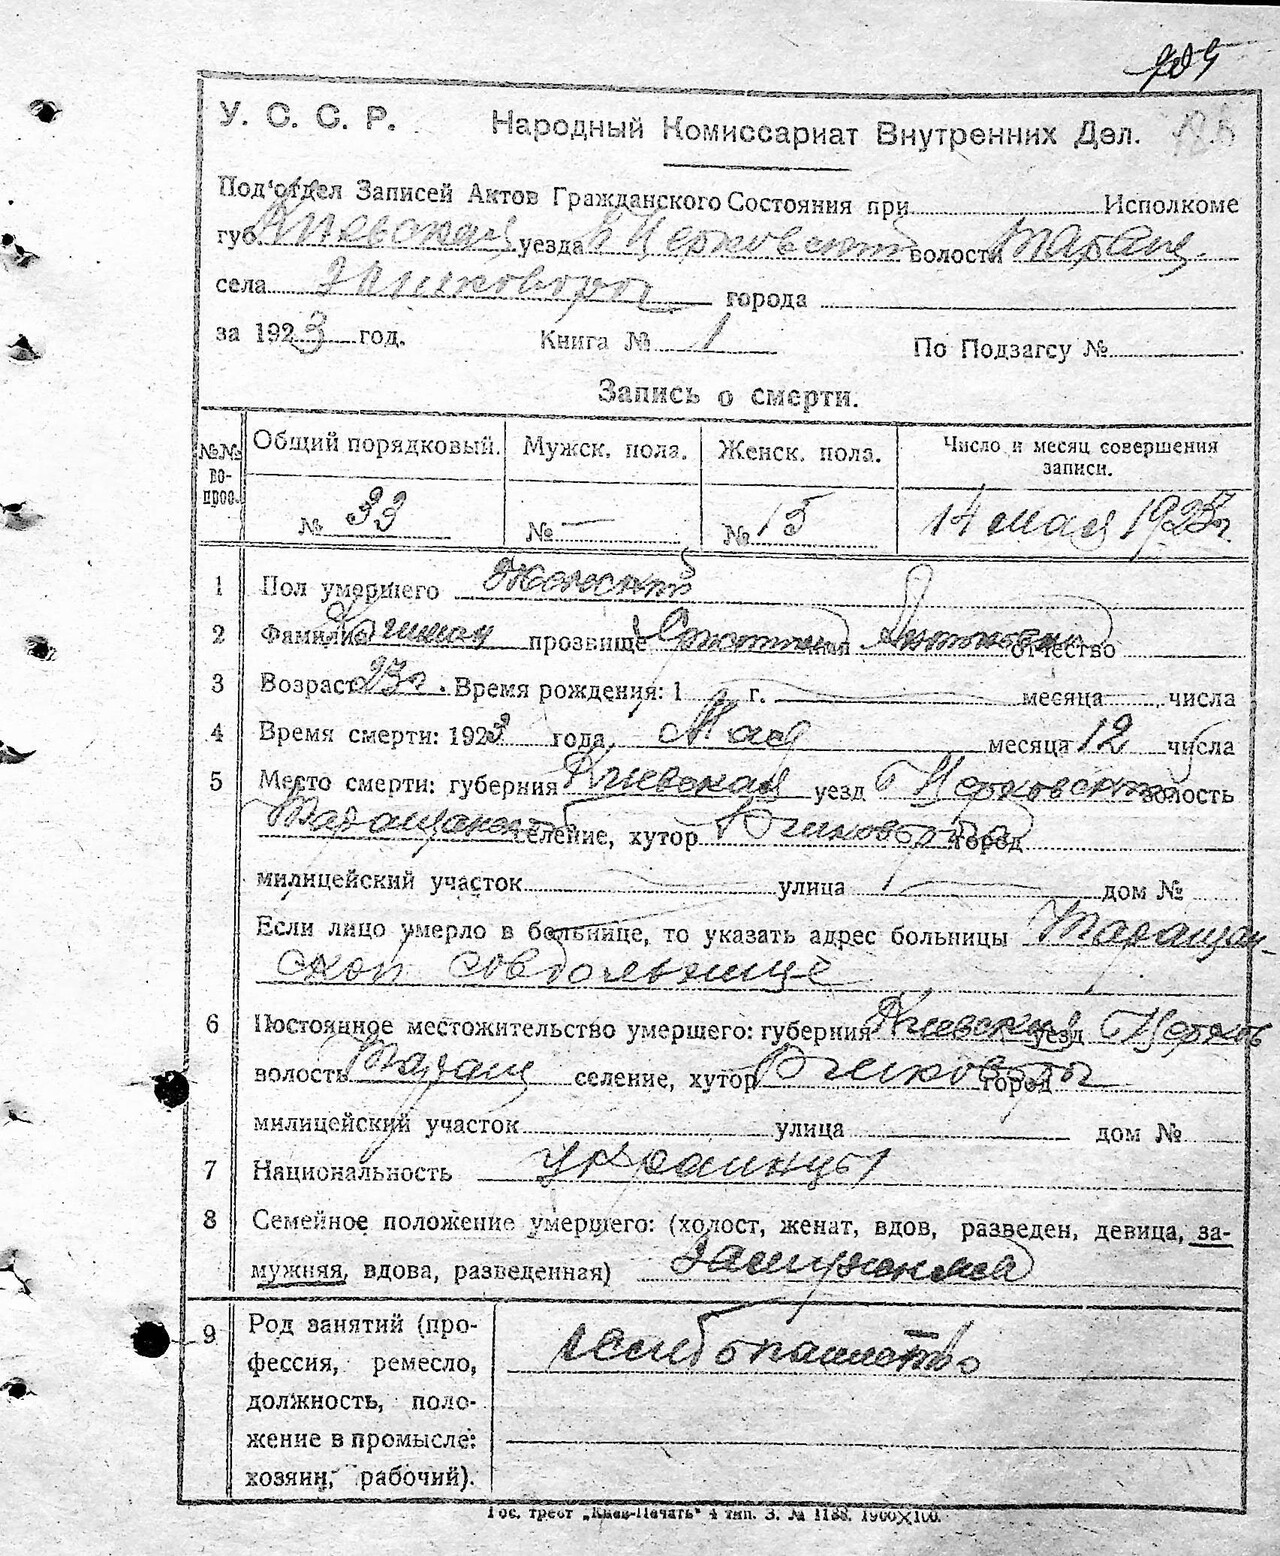 У. С. С. Р. Народный Комиссариат Внутренних Дел.
Под'отдел Записей Актов Гражданского Состояния при Исполкоме
губ. Киевская уезда Б Церковский волости Таращ.
села города
за 1923 год. Книга № 1 По Подзагсу №
Запись о смерти.
№№ вопрос. Общий порядковый. Мужск. пола. Женск. пола. Число и месяц совершения записи.
№ 33 № — № 15 14 мая 1923 г.
1 Пол умершего Женский
2 Фамилия прозвище отчество
3 Возраст 23 г. Время рождения: 1 г. месяца числа
4 Время смерти: 1923 года, Мая месяца 12 числа
5 Место смерти: губерния Киевская уезд Б Церковский волость
Таращанской селение, хутор город
милицейский участок улица дом №
Если лицо умерло в больнице, то указать адрес больницы Таращан-
ской совбольнице
6 Постоянное местожительство умершего: губерния Киевская уезд Б Церков
волость Таращ селение, хутор город
милицейский участок улица дом №
7 Национальность украинцы
8 Семейное положение умершего: (холост, женат, вдов, разведен, девица, за-
мужняя, вдова, разведенная) замужняя
9 Род занятий (про-
фессия, ремесло,
должность, поло-
жение в промысле:
хозяин, рабочий).
Гос. трест „Киев-Печать" 4 тип. З. № 1188. 1900×100.